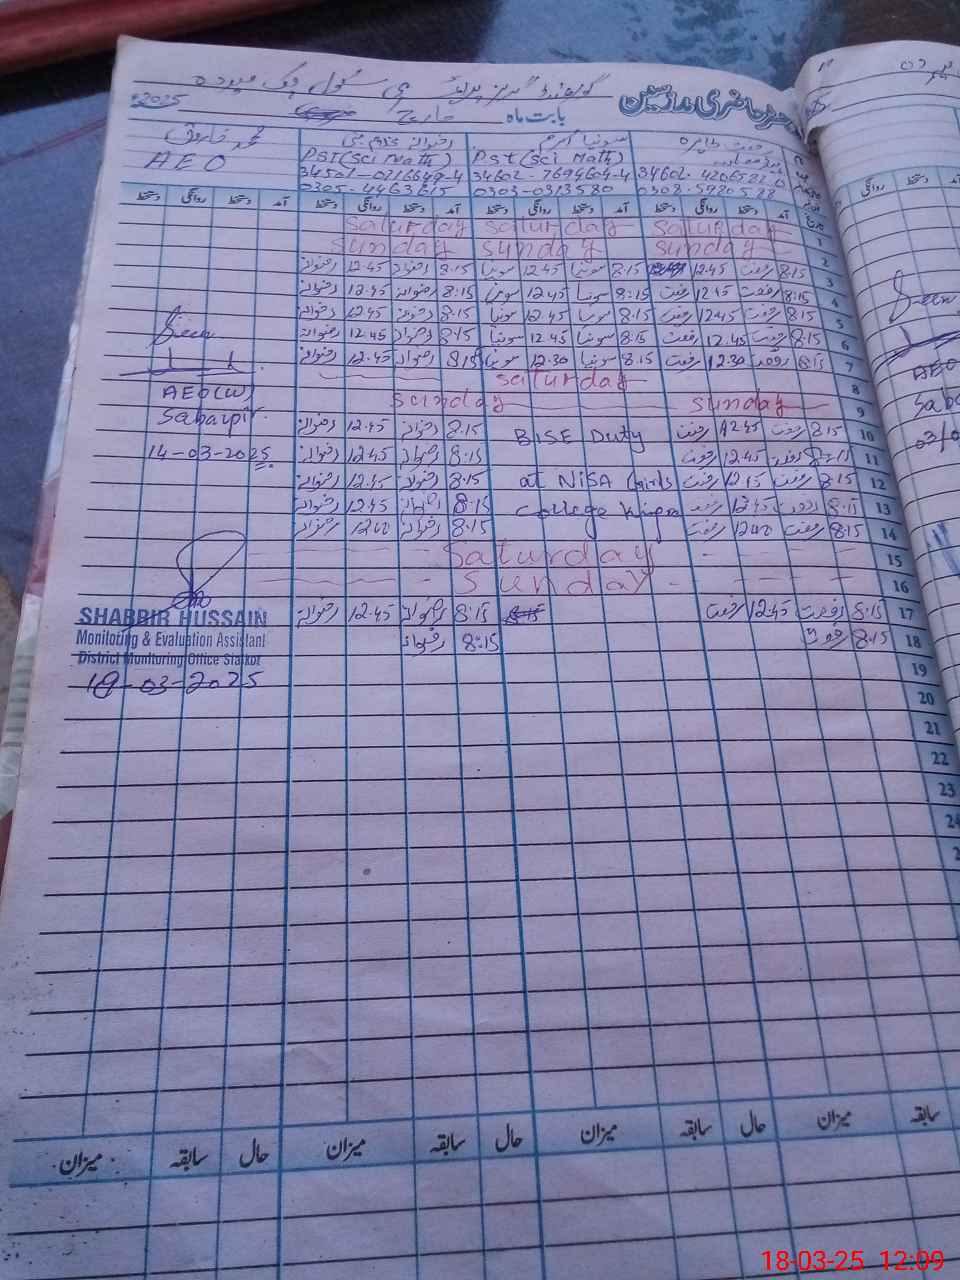 گورنمنٹ گرلز پرائمری سکول چک
رجسٹر حاضری مدرسین
بابت ماہ مارچ 2025ء
رفعت طاہرہ
سونیا اکرم PST (Sci Math) 34602-7694604-4 0303-0313580
رضوانہ PST (Sci Math) 34501-0216649-4
محمد فاروق AEO
آمد دستخط روانگی دستخط آمد دستخط روانگی دستخط آمد دستخط روانگی دستخط آمد دستخط روانگی دستخط
1 Saturday Saturday Saturday
2 Sunday Sunday Sunday
3 8:15 رفعت 12.45 8:15 سونیا 12.45 سونیا 8:15 رضوانہ 12.45 رضوانہ
4 8:15 رفعت 12.45 رفعت 8:15 سونیا 12.45 سونیا 8:15 رضوانہ 12.45 رضوانہ
5 8:15 رفعت 12.45 رفعت 8.15 سونیا 12.45 سونیا 8.15 رضوانہ 12.45 رضوانہ
6 8:15 رفعت 12.45 رفعت 8:15 سونیا 12.45 سونیا 8:15 رضوانہ 12.45 رضوانہ
7 8:15 رفعت 12.30 رفعت 8.15 سونیا 12.30 سونیا 8:15 رضوانہ 12.45 رضوانہ
8 Saturday
9 Sunday Sunday
10 8:15 رفعت 12.45 رفعت BISE Duty 8:15 رضوانہ 12.45 رضوانہ
11 8:15 رفعت 12.45 رفعت 8:15 رضوانہ 12.45 رضوانہ
12 8:15 رفعت 12.45 رفعت at NISA Girls 8:15 رضوانہ 12.45 رضوانہ
13 8:15 رفعت 12.45 رفعت College 8:15 رضوانہ 12.45 رضوانہ
14 8:15 رفعت 12.00 رفعت 8:15 رضوانہ 12.00 رضوانہ
15 Saturday
16 Sunday
17 8:15 رفعت 12.45 رفعت 8:15 رضوانہ 12.45 رضوانہ
18 8:15 رفعت 8:15 رضوانہ
19
20
21
22
23
24
Seen
AEO(W)
14-03-2025
SHABBIR HUSSAIN
Monitoring & Evaluation Assistant
District Monitoring Office Sialkot
18-03-2025
سابقہ میزان حال سابقہ میزان حال سابقہ میزان حال سابقہ میزان
روانگی دستخط
Seen
AEO
18-03-25 12:09